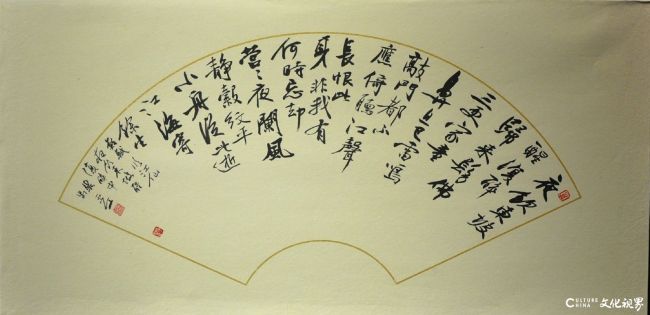 夜飲東坡
醒復醉
歸來髣髴
三更家童
鼻息已雷鳴
敲門都不
應倚聽江聲
長恨此
身非我有
何時忘却
營々夜闌風
靜縠紋平
小舟從此逝
江海寄
餘生 臨江仙
CULTURE CHINA 文化视界